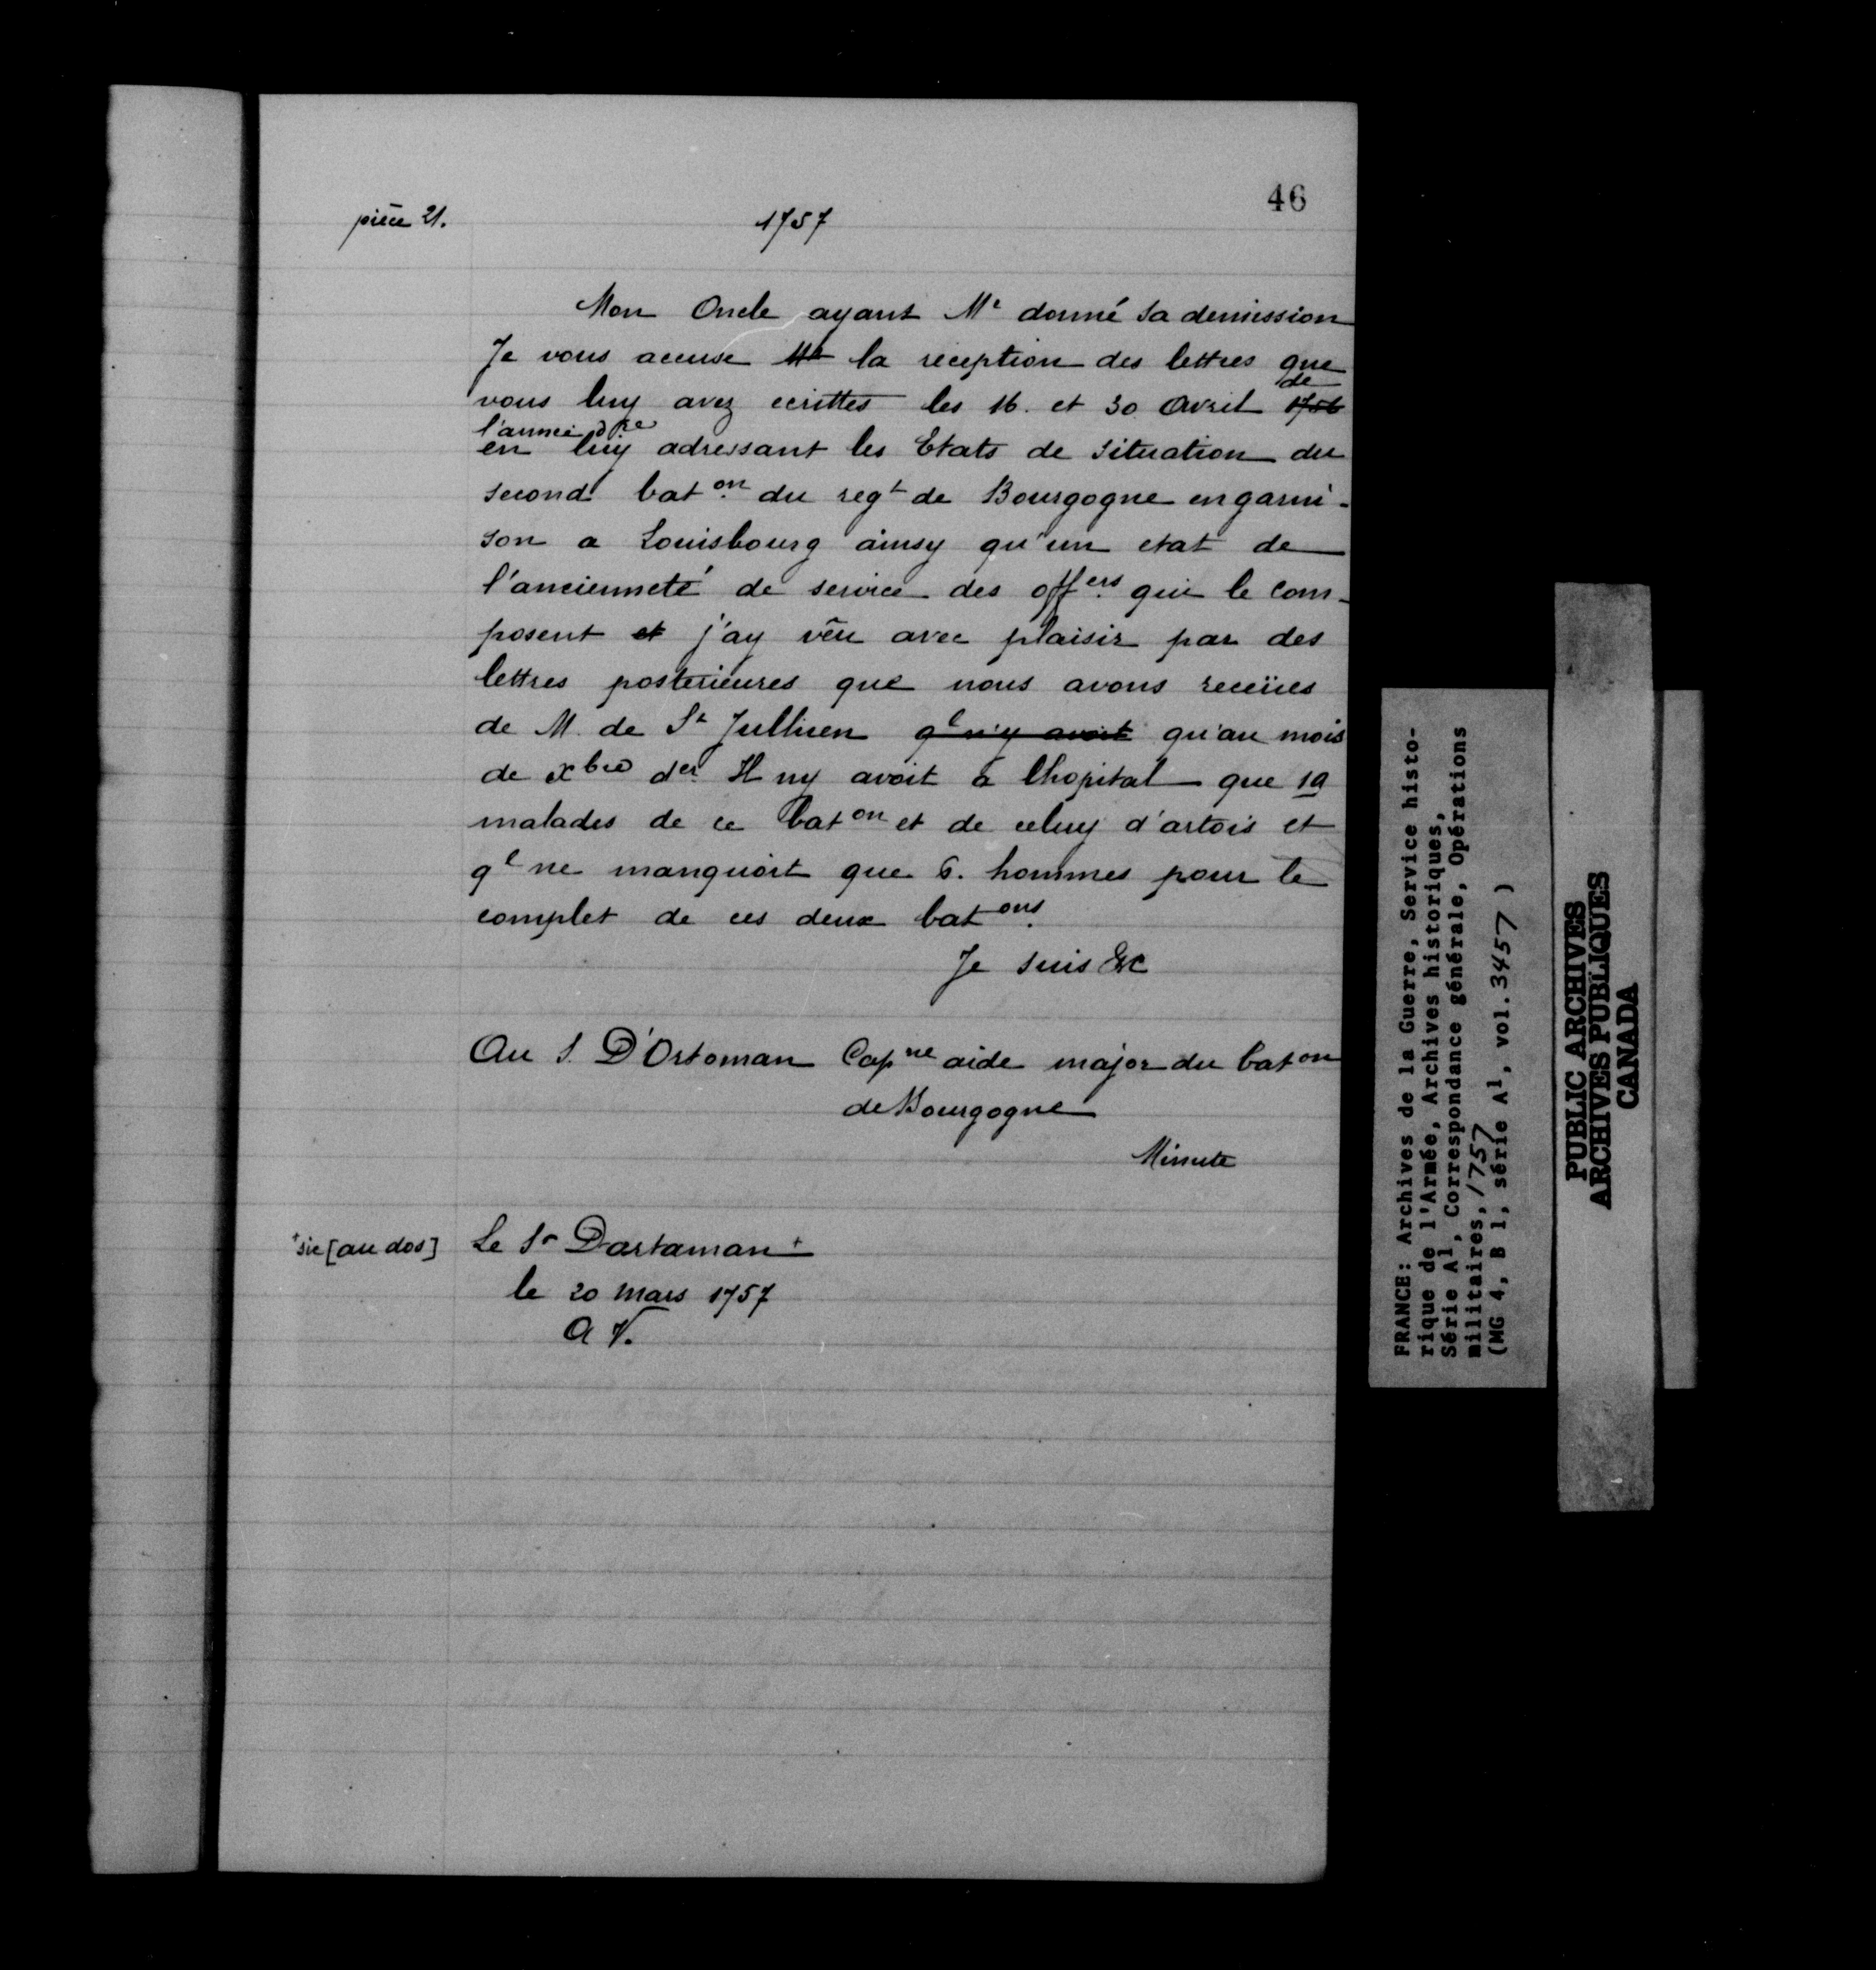 46
pièce 21.
1757
Mon Oncle ayant Mr donné sa demission
Je vous accuse Mr la reception des lettres que
vous luy avez ecrittes les 16. et 30 Avril 1756 de
l'année dre
en luy adressant les Etats de situation du
second baton. du regt de Bourgogne en garni-
son a Louisbourg ainsy qu'un etat de
l'ancienneté de service des offers. qui le com-
posent et j'ay vêu avec plaisir par des
lettres posterieures que nous avons receües
de M. de St Jullien ql n'y avoit qu'au mois
de xbre der. Il ny avoit a lhopital que 19
malades de ce baton et de celuy d'artois et
ql ne manquoit que 6. hommes pour le
complet de ces deux batons.
Je suis &c
Au S. D'Ortoman Capne aide major du baton
de Bourgogne
Minute
+sic [au dos]
Le Sr Dartaman+
le 20 Mars 1757
A V.
FRANCE: Archives de la Guerre, Service histo-
rique de l'Armée, Archives historiques,
Série A1, Correspondance générale, Opérations
militaires, 1757
(MG 4, B 1, série A1, vol. 3457 )
PUBLIC ARCHIVES
ARCHIVES PUBLIQUES
CANADA